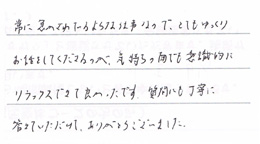 常に見守られているような お声なので、とてもゆっくり
お話をしてくださるので、気持ちの面でも意識的に
リラックスできて良かったです 質問にも丁寧に
答えていただけて、ありがとうございました。